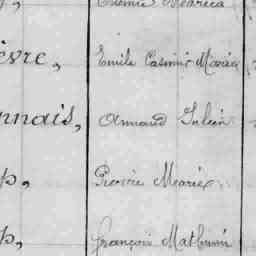 èvre, Emile Casimir Marie
nnais, Armand Julien
p, Pierre Marie
p, François Mathurin